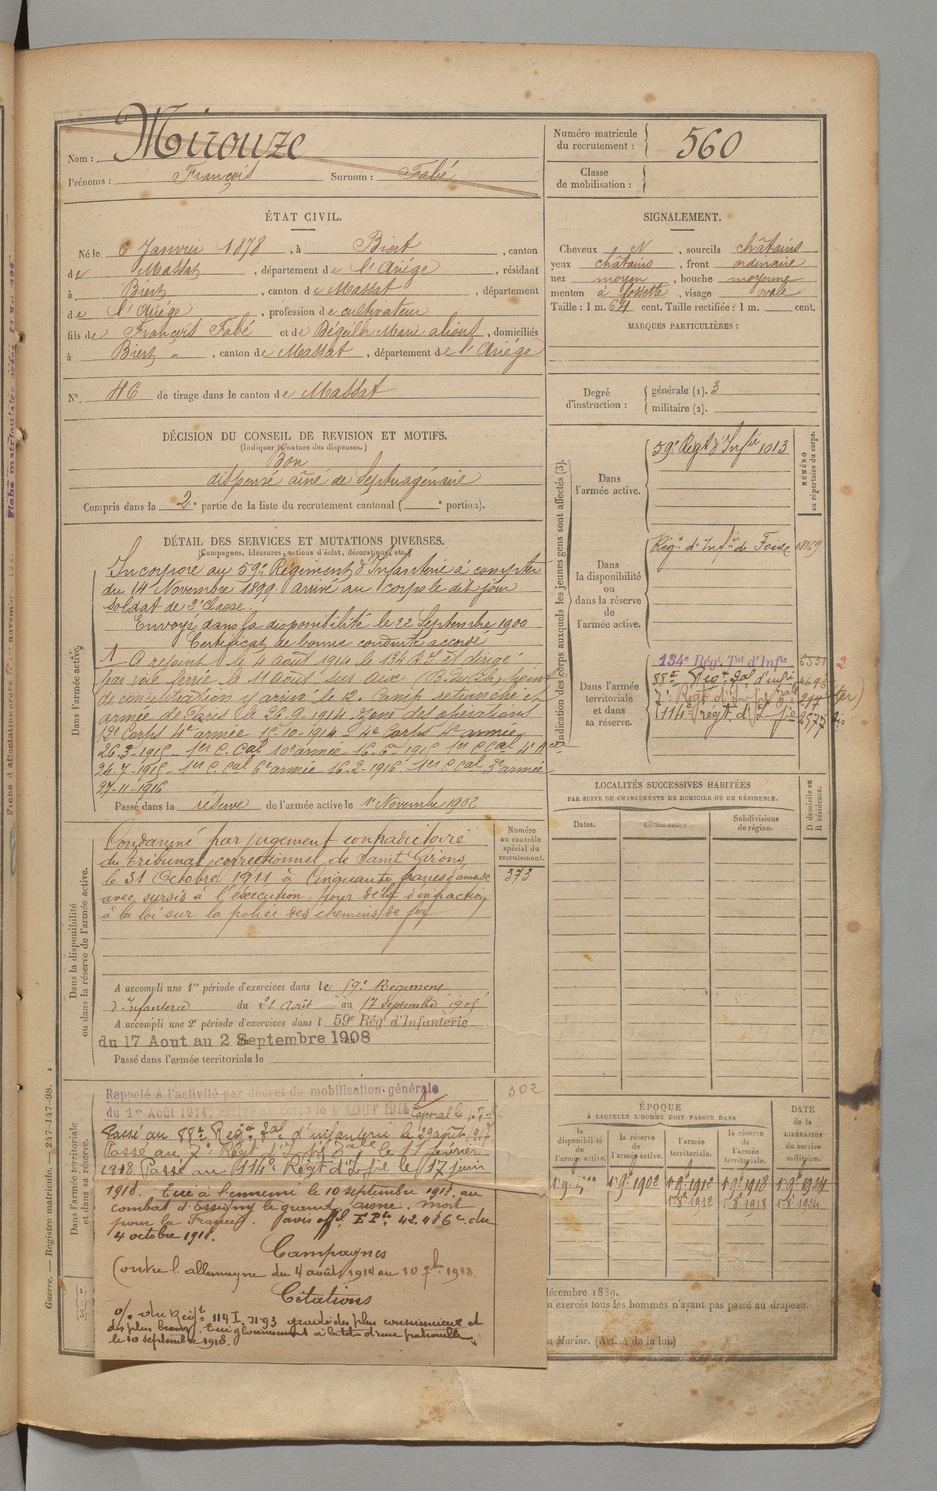 Nom : Mirouze
Prénoms : François Surnom : Fabé
Numéro matricule du recrutement : 560
Classe de mobilisation :
ÉTAT CIVIL.
Né le 6 Janvier 1878, à Biert, canton
de Massat, département de l'Ariége, résidant
à Biert, canton de Massat, département
de l'Ariége, profession de cultivateur
fils de François Fabé et de Marie, domiciliés
à Biert, canton de Massat, département de l'Ariége
N°. 46 de tirage dans le canton de Massat
SIGNALEMENT.
Cheveux N, sourcils châtains
yeux châtains, front ordinaire
nez moyen, bouche moyenne
menton à fossette, visage ovale
Taille : 1 m. 64 cent. Taille rectifiée : 1 m. cent.
MARQUES PARTICULIÈRES :
Degré d'instruction : générale (1). 3
militaire (2).
DÉCISION DU CONSEIL DE REVISION ET MOTIFS.
(Indiquer la nature des dispenses.)
Bon
dispensé aîné de Septuagénaire
Compris dans la 2e partie de la liste du recrutement cantonal ( portion).
DÉTAIL DES SERVICES ET MUTATIONS DIVERSES.
(Campagnes, blessures, actions d'éclat, décorations, etc.)
Dans l'armée active.
Incorporé au 59e Régiment d'Infanterie à compter
du 14 Novembre 1899 arrivé au corps le dit jour
soldat de 2e classe.
Envoyé dans la disponibilité le 22 Septembre 1900
Certificat de bonne conduite accordé
A rejoint le 4 août 1914 le 134 et dirigé
par voie ferrée le 11 Août sur
de concentration y arrivé le 12. Camp retranché et
armée de Paris le 26.9.1914. Zone des opérations
4e armée 15-10-1914 4e Corps 4e armée
26-3-1915 1er C. Cal 10e armée 1915 1er C Cal
24-7-1915 1er C. Cal 6e armée 16-2-1916 1er C Cal 3e armée
27-11-1916
Passé dans la réserve de l'armée active le 1er Novembre 1902
Dans la disponibilité ou dans la réserve de l'armée active.
Condamné par jugement contradictoire
du tribunal correctionnel de Saint Girons
le 31 Octobre 1911 à Cinquante francs d'amende
avec sursis à l'exécution, pour délit d'infraction
à la loi sur la police des chemins de fer
Numéro au contrôle spécial du recrutement.
373
A accompli une 1re période d'exercices dans le 59e Régiment
d'Infanterie du 21 Août au 17 Septembre 1905
A accompli une 2e période d'exercices dans l 59e Rég' d'Infanterie
du 17 Aout au 2 Septembre 1908
Passé dans l'armée territoriale le
Dans l'armée territoriale et dans sa réserve.
302
Rappelé à l'activité par décret de mobilisation générale
du 1er Août 1914. Arrivé au corps le 4 AOUT 1914 Caporal le
Passé au 88e Régt d'infanterie le 29 août 1917
Passé au 7e Régt d'Infie Cale le 11 février
1918 Passé au 114e Régt d'Infie le 17 juin
1918. Tué à l'ennemi le 10 septembre 1918. au
combat d'Essigny le grand Aisne. mort
pour la France. avis offl 42.486 c. du
4 octobre 1918.
Campagnes
Contre l'allemagne du 4 août 1914 au 10 7bre 1918.
Citations
O/. du 114 I. gradé des plus consciencieux et
des plus braves. Tué glorieusement à la tête d'une patrouille
le 10 septembre 1918.
Indication des corps auxquels les jeunes gens sont affectés (3).
NUMÉRO au répertoire du corps.
Dans l'armée active. 59e Régt d'Infie 1013
Dans la disponibilité ou dans la réserve de l'armée active. Régt d'Infie de Foix
Dans l'armée territoriale et dans sa réserve.
134e Régt Tal d'Infie
88e Régt d'infie
7e Régt d'Infie Cale
114e régt d'Infie
LOCALITÉS SUCCESSIVES HABITÉES
PAR SUITE DE CHANGEMENTS DE DOMICILE OU DE RÉSIDENCE.
Dates. Communes. Subdivisions de région. D domicile ou R résidence.
ÉPOQUE
À LAQUELLE L'HOMME DOIT PASSER DANS
DATE DE LA LIBÉRATION DU SERVICE militaire.
la disponibilité de l'armée active. la réserve de l'armée active. l'armée territoriale. la réserve de l'armée territoriale.
1902 1912 1918 1924
décembre 1830.
n exercés tous les hommes n'ayant pas passé au drapeau.
u Marine. (Art. 4 de la loi)
Guerre. — Registre matricule. — 247-147-98.